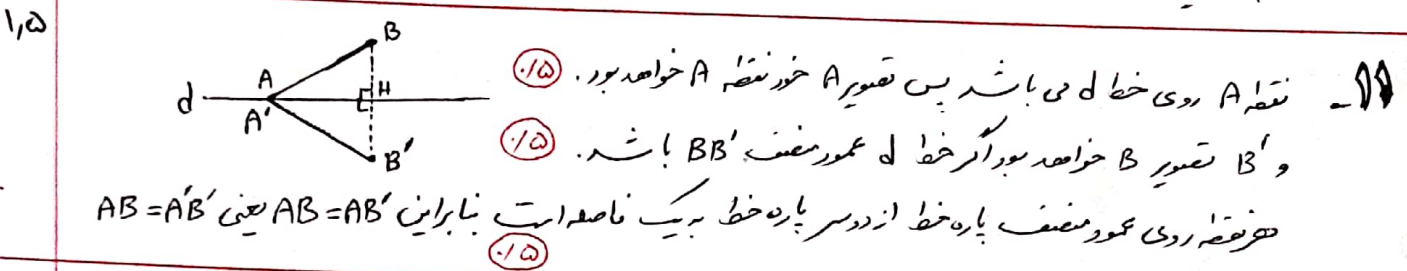 ۱٫۵
۱۱- نقطه A روی خط d می باشد پس تصویر A خود نقطه A خواهد بود. ۰/۵
و B′ تصویر B خواهد بود اگر خط d عمود منصف BB′ باشد. ۰/۵
هر نقطه روی عمود منصف پاره خط از دو سر پاره خط به یک فاصله است بنابراین AB=AB′ یعنی AB=A′B′
۰/۵
B
A
H
d
A′
B′